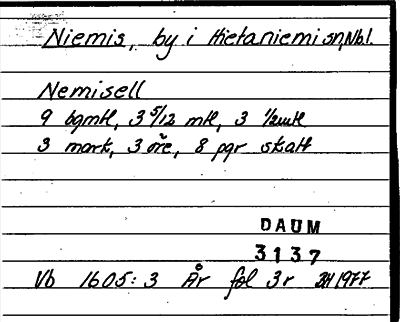 Niemis, by i Hietaniemi sn, Nbl.
Nemisell
9 bgmtl, 3 5/12 mtl, 3 1/2 mtl
3 mark, 3 öre, 8 pgr skatt
DAUM
3137
Vb 1605:3 År fol 3r 1977